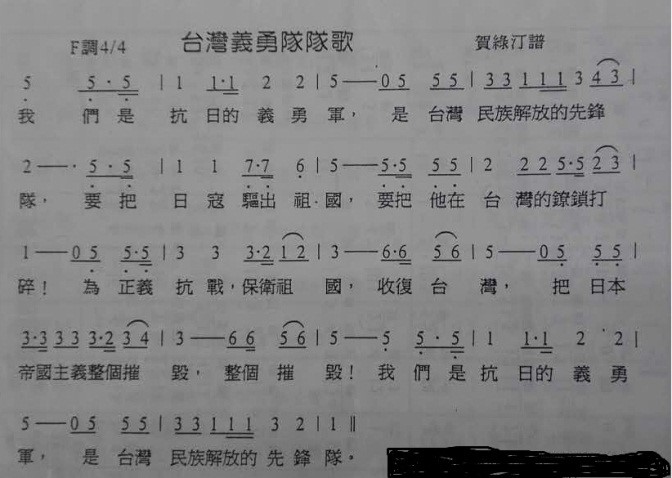 F調4/4 台灣義勇隊隊歌 賀綠汀譜
5 5·5 | 1 1·1 2 2 | 5——0 5 5 5 | 3 3 1 1 1 3 4 3 |
我 們是 抗 日的 義 勇 軍， 是 台灣 民族解放的先鋒
2——· 5·5 | 1 1 7·7 6 | 5——5·5 5 5 | 2 2 2 5·5 2 3 |
隊， 要把 日 寇 驅出 祖·國， 要把 他在 台 灣的鐐鎖打
1——0 5 5·5 | 3 3 3·2 1 2 | 3——6·6 5 6 | 5——0 5 5 5 |
碎！ 為 正義 抗 戰，保衛祖 國， 收復 台 灣， 把 日本
3·3 3 3 3·2 3 4 | 3——6 6 5 6 | 5——5 5·5 | 1 1·1 2 2 |
帝國主義整個摧 毀， 整個 摧 毀！ 我 們 是 抗 日的 義 勇
5——0 5 5 5 | 3 3 1 1 1 3 2 | 1 ||
軍， 是 台灣 民族解放的 先 鋒 隊。